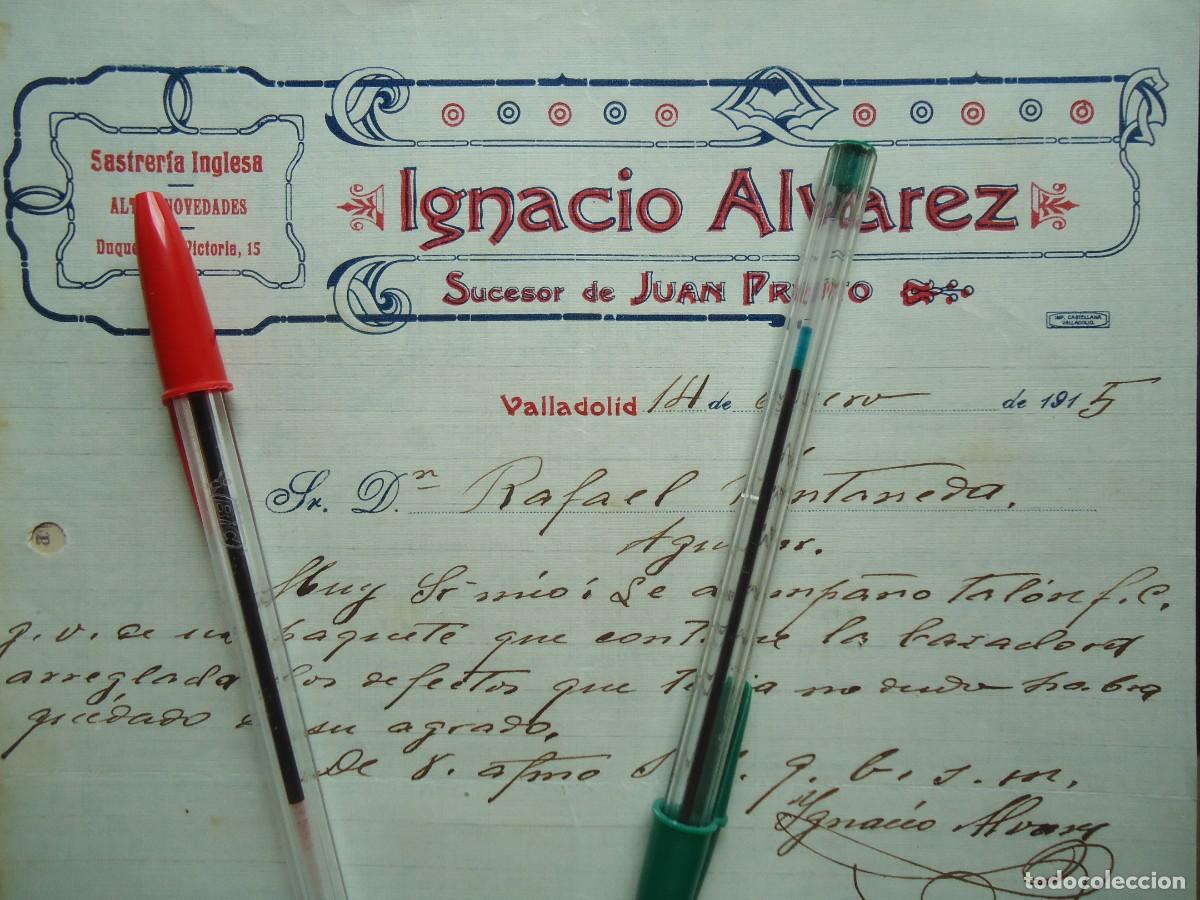 Sastrería Inglesa
NOVEDADES
Victoria, 15
Ignacio Alvarez
Sucesor de JUAN
IMP. CASTELLANA
VALLADOLID
Valladolid 14 de enero de 1915
Sr. Dn Rafael
Muy Sr mio: Le acompaño talón f.c.
q.v. de un paquete que contiene la
arreglada los defectos que tenia no dudo habra
quedado a su agrado.
De V. afmo S. S. q. b. s. m.
Ignacio Alvarez
todocoleccion